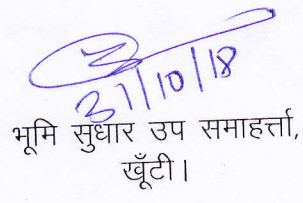 31/10/18
भूमि सुधार उप समाहर्त्ता,
खूँटी।